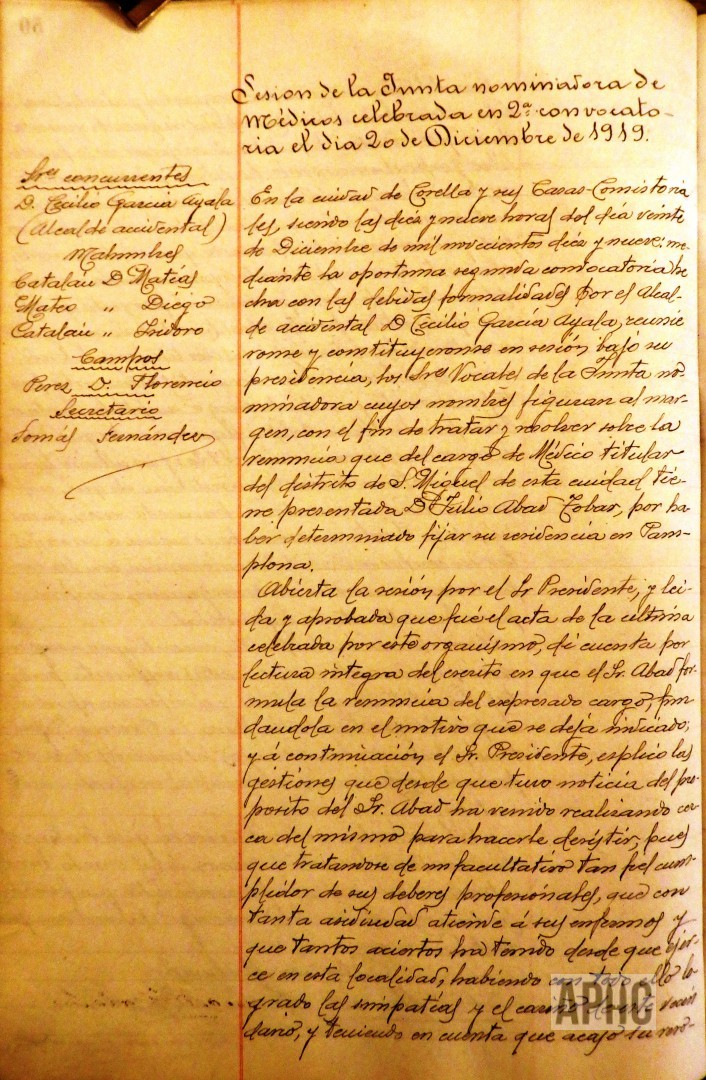 Sesion de la Junta nominadora de
Médicos celebrada en 2ª convocato-
ria el dia 20 de Diciembre de 1919.
Sres concurrentes
D. Cecilio García Ayala
(Alcalde accidental)
Catalán D. Matías
Mateo " Diego
Catalán " Isidoro
Campos
Perez D. Florencio
Secretario
Tomás Fernández
En la ciudad de Corella y sus Casas-Consistoria
les, siendo las diez y nueve horas del día veinte
de Diciembre de mil novecientos diez y nueve: me-
diante la oportuna segunda convocatoria he
cha con las debidas formalidades por el Alcal-
de accidental D. Cecilio García Ayala, reunie
ronse y constituyeronse en sesión bajo su
presidencia, los Sres Vocales de la Junta no-
minadora cuyos nombres figuran al mar-
gen, con el fin de tratar y resolver sobre la
renuncia que del cargo de Médico titular
del distrito de S. Miguel de esta ciudad tie-
ne presentada D. Julio Abad Tobar, por ha
ber determinado fijar su residencia en Pam-
plona.
Abierta la sesión por el Sr Presidente, y lei-
da y aprobada que fué el acta de la ultima
celebrada por este organismo, dí cuenta por
lectura integra del escrito en que el Sr. Abad for
mula la renuncia del expresado cargo, fun
dandola en el motivo que se deja indicado;
y á continuación el Sr. Presidente, esplicó las
gestiones que desde que tuvo noticia del pro
posito del Sr. Abad ha venido realizando cer
ca del mismo para hacerle desistir, pues
que tratandose de un facultativo tan fiel cum-
plidor de sus deberes profesionales, que con
tanta asiduidad atiende á sus enfermos y
que tantos aciertos ha tenido desde que ejer-
ce en esta localidad, habiendo con todo ello lo
grado las simpatías y el cariño vecin
dario, y teniendo en cuenta que acaso su
APHC